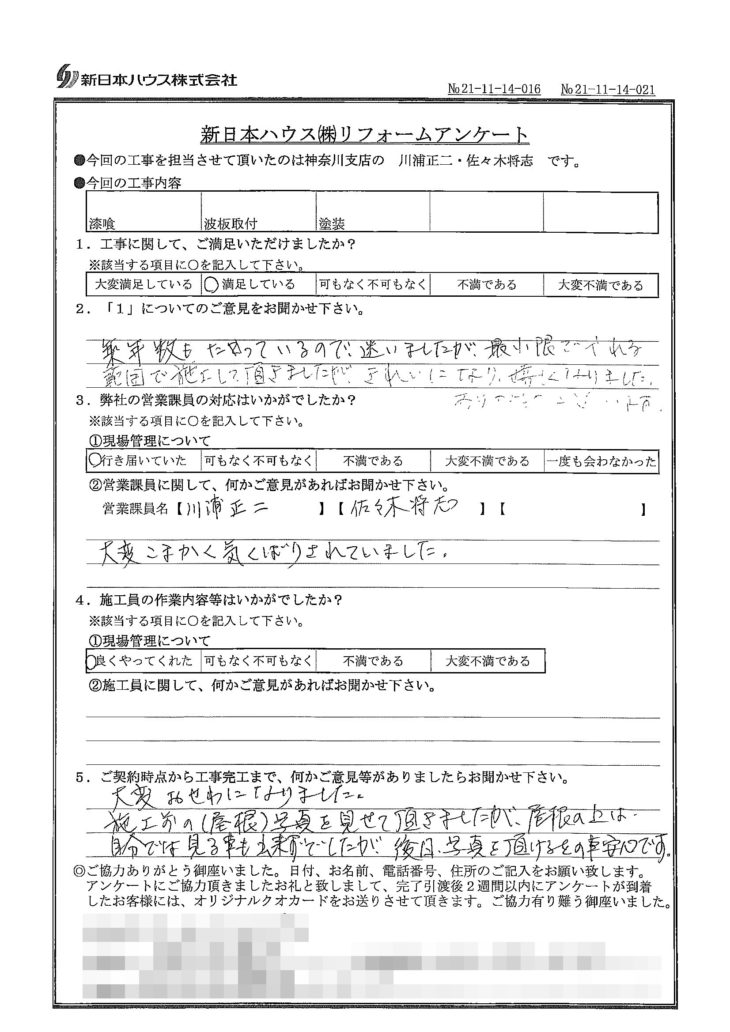 新日本ハウス株式会社
№21-11-14-016 №21-11-14-021
新日本ハウス㈱リフォームアンケート
●今回の工事を担当させて頂いたのは神奈川支店の 川浦正二・佐々木将志 です。
●今回の工事内容
漆喰 波板取付 塗装
1．工事に関して、ご満足いただけましたか？
※該当する項目に○を記入して下さい。
大変満足している ○満足している 可もなく不可もなく 不満である 大変不満である
2．「1」についてのご意見をお聞かせ下さい。
築年数もたっているので、迷いましたが、最小限でやれる
範囲で施工して頂きましたが、きれいになり、嬉しくなりました。
ありがとうございます。
3．弊社の営業課員の対応はいかがでしたか？
※該当する項目に○を記入して下さい。
①現場管理について
○行き届いていた 可もなく不可もなく 不満である 大変不満である 一度も会わなかった
②営業課員に関して、何かご意見があればお聞かせ下さい。
営業課員名【川浦正二 】【佐々木将志 】【 】
大変こまかく気くばりされていました。
4．施工員の作業内容等はいかがでしたか？
※該当する項目に○を記入して下さい。
①現場管理について
○良くやってくれた 可もなく不可もなく 不満である 大変不満である
②施工員に関して、何かご意見があればお聞かせ下さい。
5．ご契約時点から工事完工まで、何かご意見等がありましたらお聞かせ下さい。
大変おせわになりました。
施工前の(屋根)写真を見せて頂きましたが、屋根の上は
自分では見る事も出来ずでしたが 後日、写真を頂けるとの事安心です。
◎ご協力ありがとう御座いました。日付、お名前、電話番号、住所のご記入をお願い致します。
アンケートにご協力頂きましたお礼と致しまして、完了引渡後2週間以内にアンケートが到着
したお客様には、オリジナルクオカードをお送りさせて頂きます。ご協力有り難う御座いました。